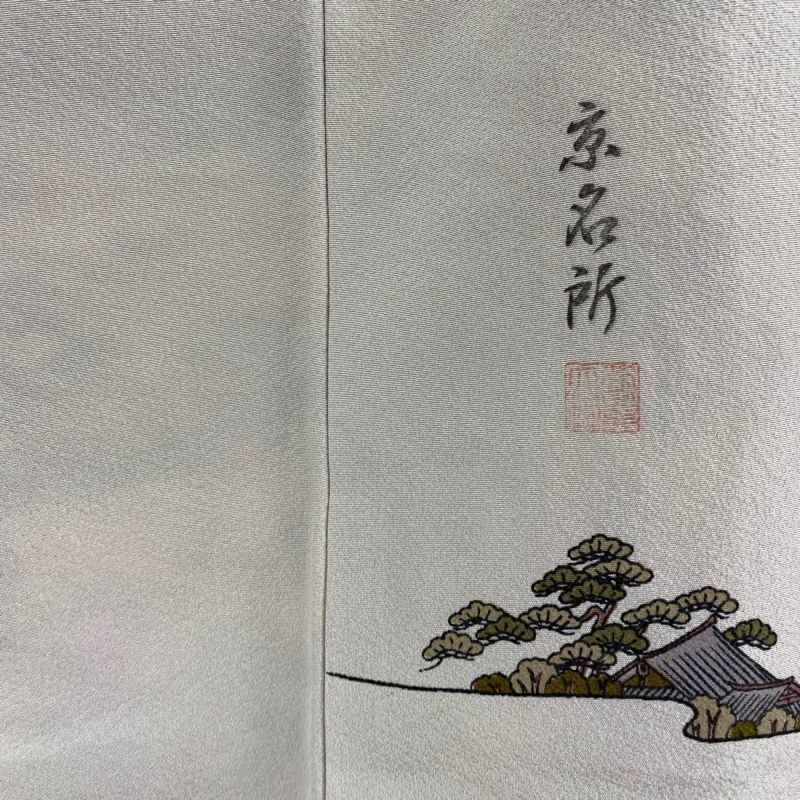 京名所